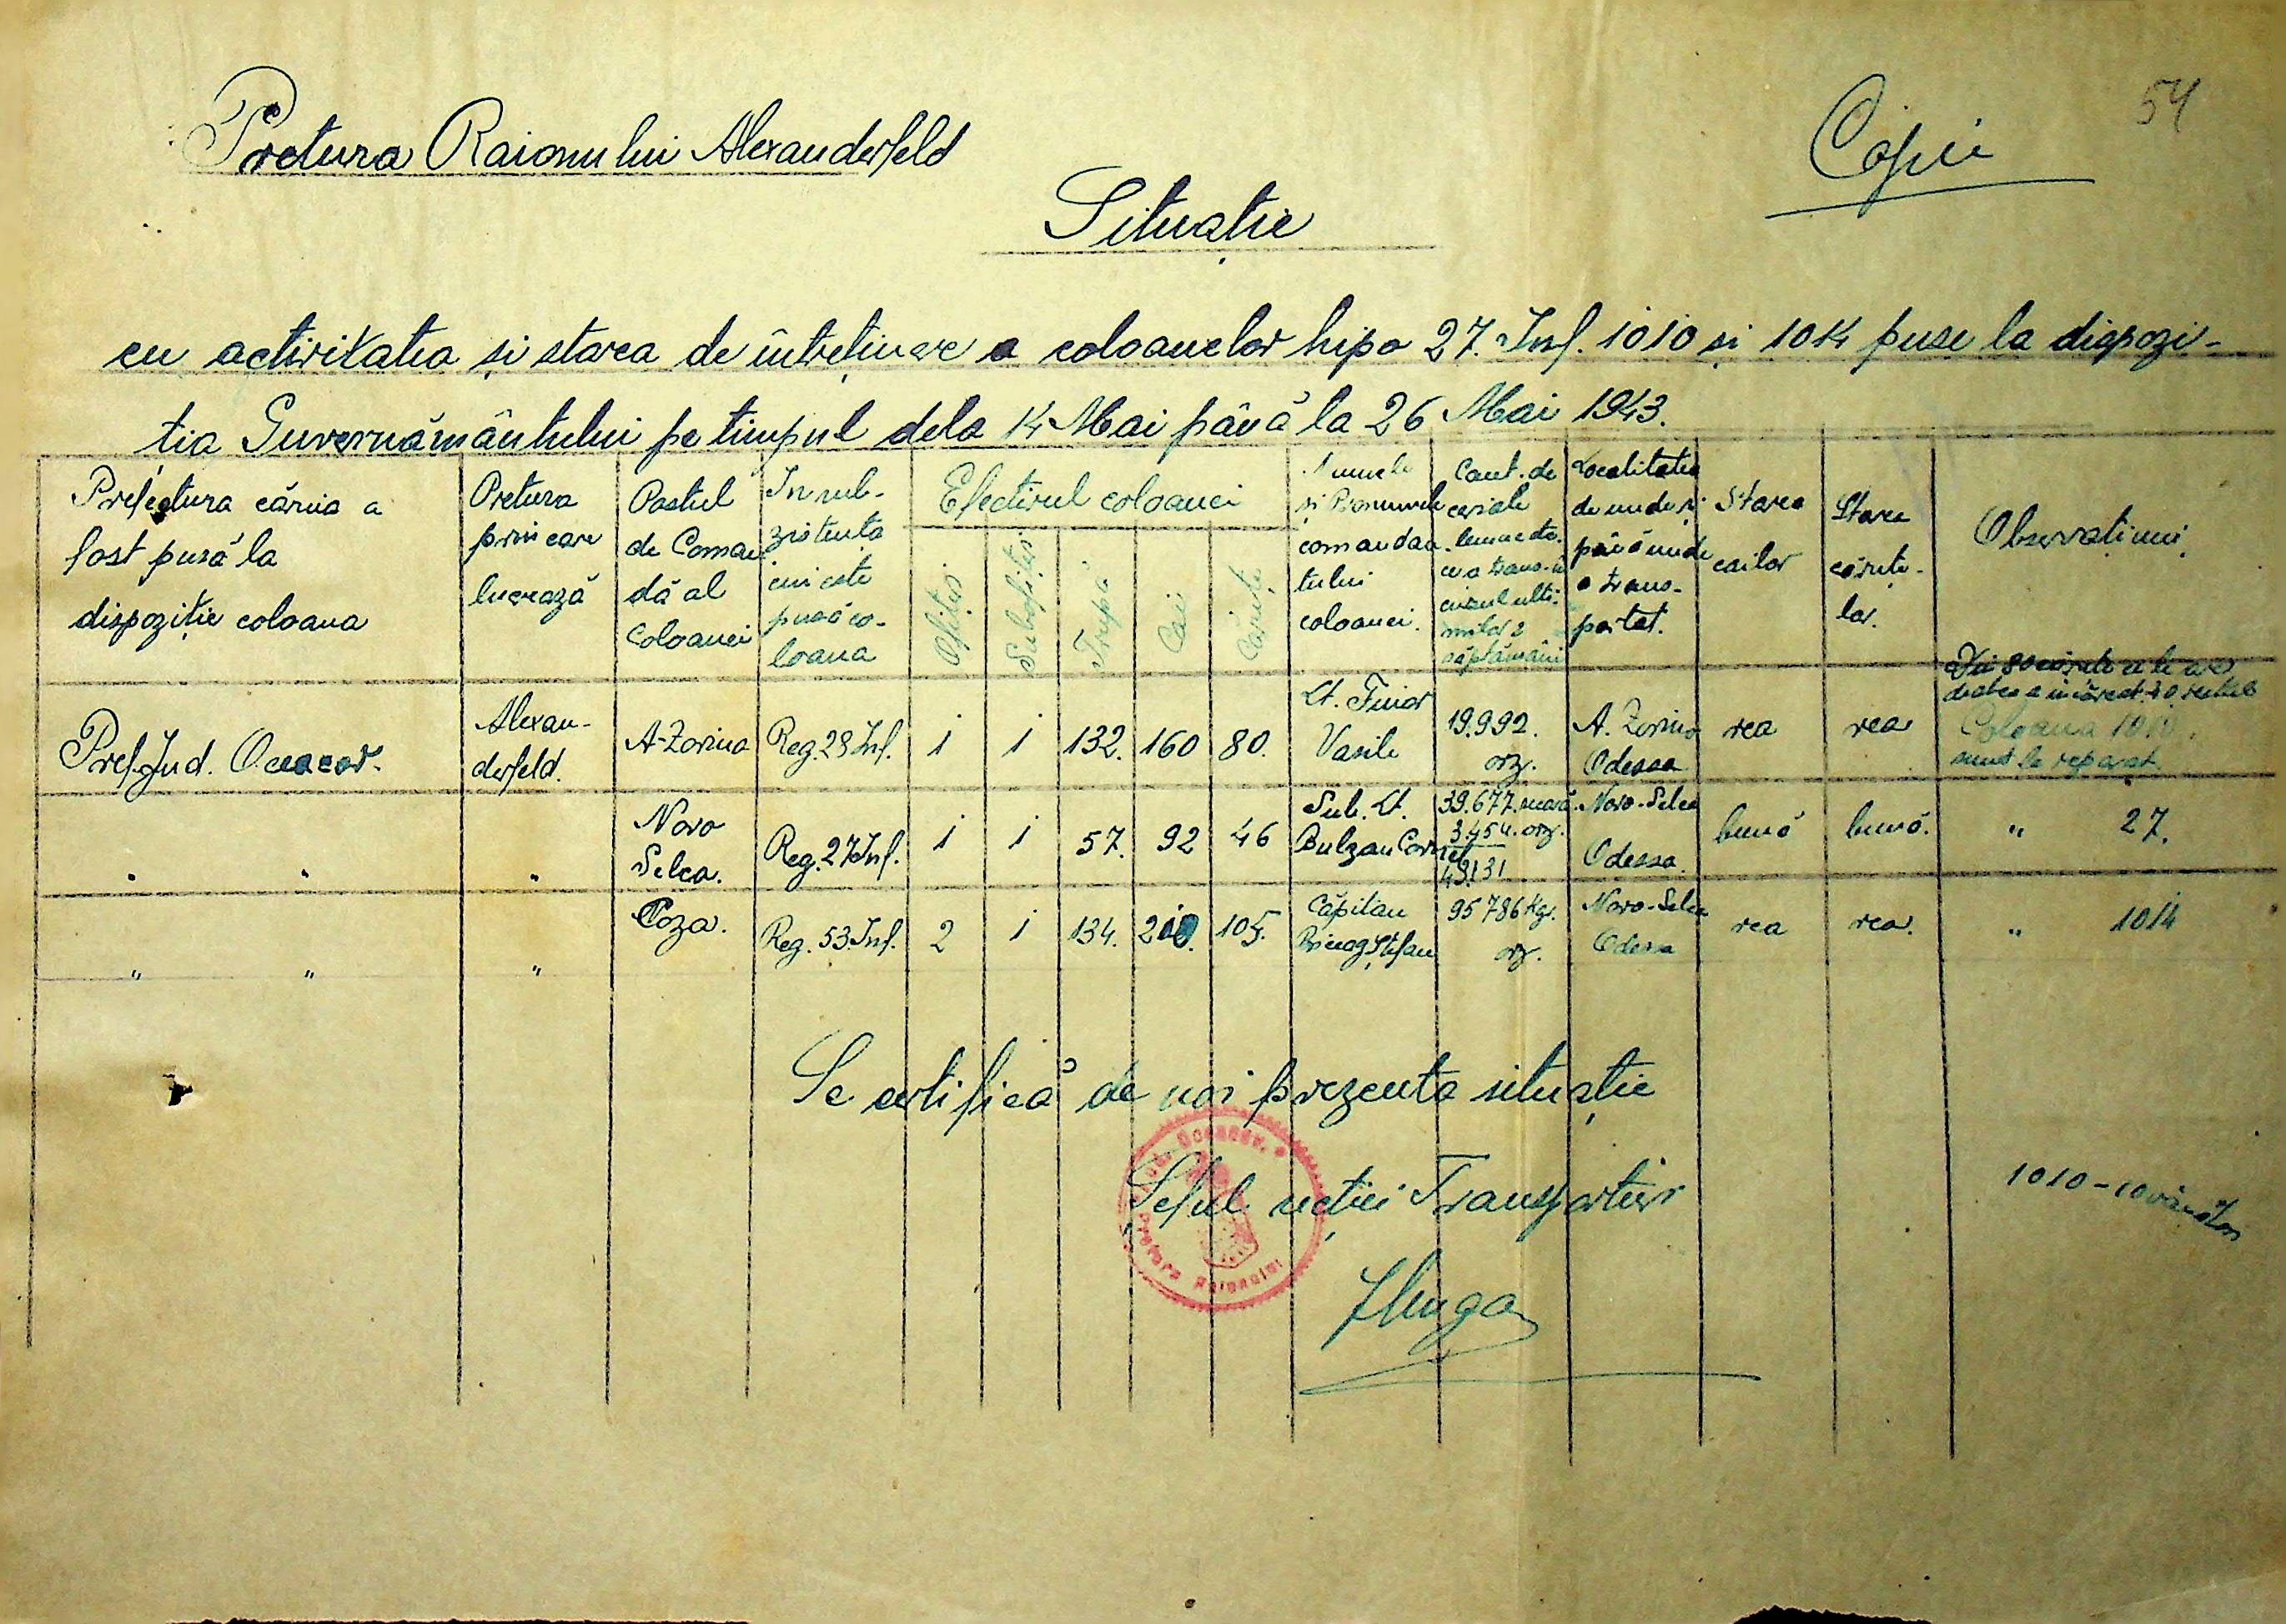 54
Copie
Pretura Raionului Alexanderfeld
Situație
cu activitatea și starea de întreținere a coloanelor hipo 27. Inf. 1010 și 1014 puse la dispozi-
ția Guvernământului pe timpul dela 14 Mai până la 26 Mai 1943.
Prefectura căruia a
fost pusă la
dispoziție coloana
Pretura
prin care
lucrează
Postul
de Coman
dă al
Coloanei
In sub-
zistența
cui este
pusă co-
loana
Efectivul coloanei
Ofițeri
Subofițeri
Trupă
Cai
Căruțe
Numele
și Pronumele
comandan-
tului
coloanei.
Cant. de
cereale
lemne etc.
ce a trans-
cursul ulti-
milor 2
săptămâni
Localitatea
de unde și
până unde
a trans-
portat.
Starea
cailor
Starea
căruțe-
lor.
Observațiuni
Pref. Jud. Oceacov.
Alexan-
derfeld.
A-Zorina
Reg. 28 Inf.
1
1
132.
160
80.
Lt. Fuior
Vasile
19.992.
orz.
A. Zorina
Odessa
rea
rea
Din 80 căruțe ce le are
Coloana 1010.
sunt la reparat.
" " "
Novo
Selca.
Reg. 27 Inf.
1
1
57.
92
46
Sub. Lt.
Bulzan Cornel
39.677. secară
3.454. orz.
43131
Novo-Selca
Odessa.
bună
bună.
" 27.
" " "
Coza.
Reg. 53. Inf.
2
1
134.
210.
105.
Căpitan
Ștefan
95786 Kgr.
orz.
Novo-Selca
Odessa
rea
rea.
" 1014
Se certifică de noi prezenta situație
Șeful secției Transporturi
Jud. Oceacov.
Pretura Raionului
1010 - 10